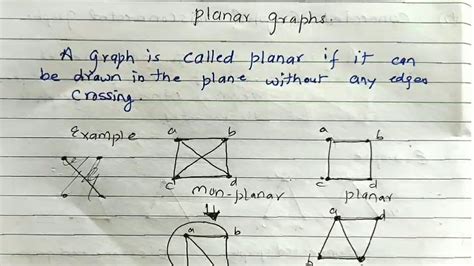 planar graphs.
A graph is called planar if it can
be drawn in the plane without any edges
crossing.
Example
a b a b
c d c d
non-planar planar
a b a d
b